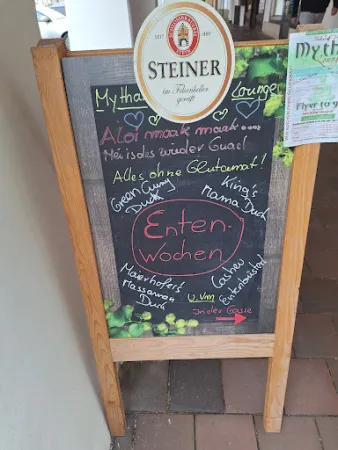 STEINER
im Felsenkeller
gereift
Mythai Lounge
Aloi maak maak....
Mei is des wieder Guad!
Alles ohne Glutamat!
Green Curry
Duck
King's
Mama Duck
Enten-
Wochen
Maierhofers
Massaman
Duck
Cashew
Entenbrüsterl
u.v.m
In der Gasse
Mytha
Flyer to g